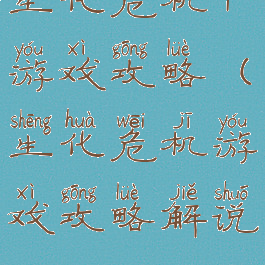 生化危机
yóu xì gōng lüè
游戏攻略（
shēng huà wēi jī yóu
生化危机游
xì gōng lüè jiě shuō
戏攻略解说